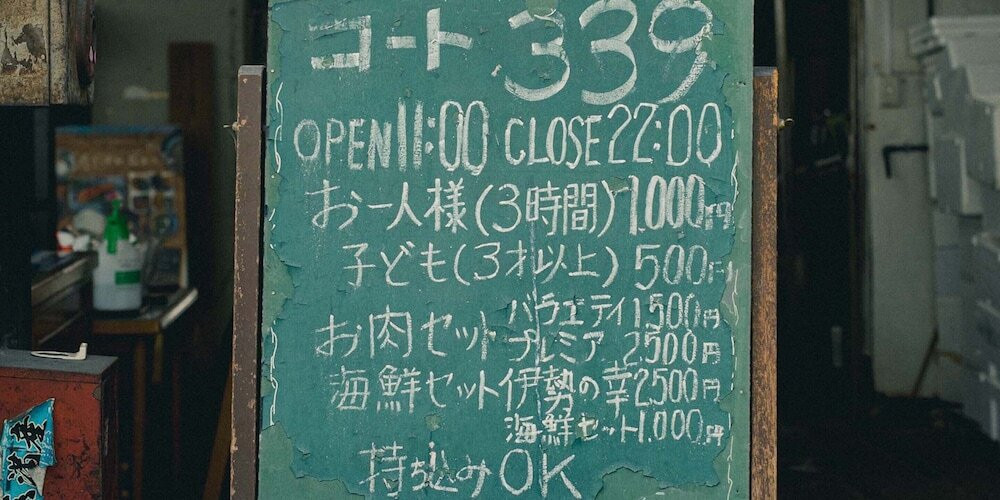 コート 339
OPEN 11:00 CLOSE 22:00
お一人様(3時間) 1.000円
子ども(3才以上) 500円
お肉セット バラエティ 1500円
プレミア 2500円
海鮮セット 伊勢の幸 2500円
海鮮セット 1.000円
持ち込みOK